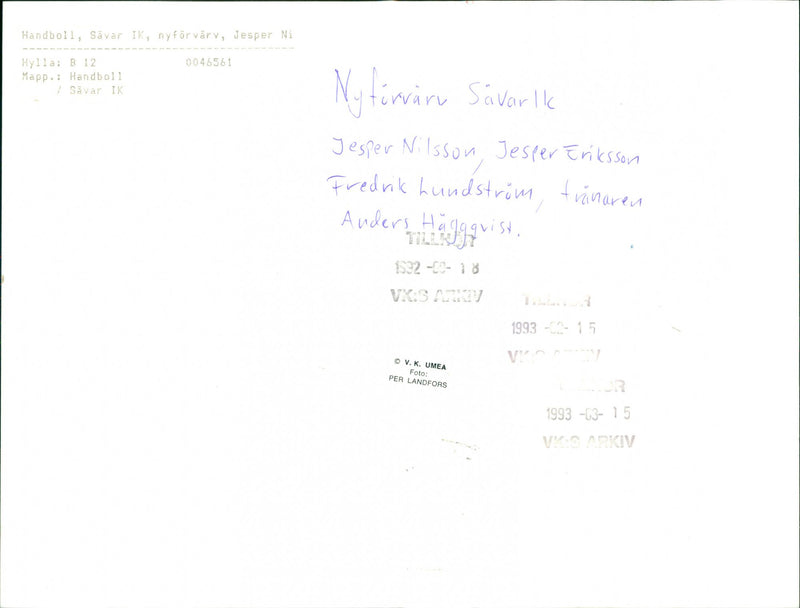 Handboll, Sävar IK, nyförvärv, Jesper Ni
Hylla: B 12 0046561
Mapp.: Handboll
/ Sävar IK
Nyförvärv Sävar Ik
Jesper Nilsson, Jesper Eriksson
Fredrik Lundström, tränaren
Anders Häggqvist.
TILLHÖR
1992 -03- 18
VK:S ARKIV
TILLHÖR
1993 -02- 15
VK:S ARKIV
© V. K. UMEA
Foto:
PER LANDFORS
TILLHÖR
1993 -03- 15
VK:S ARKIV